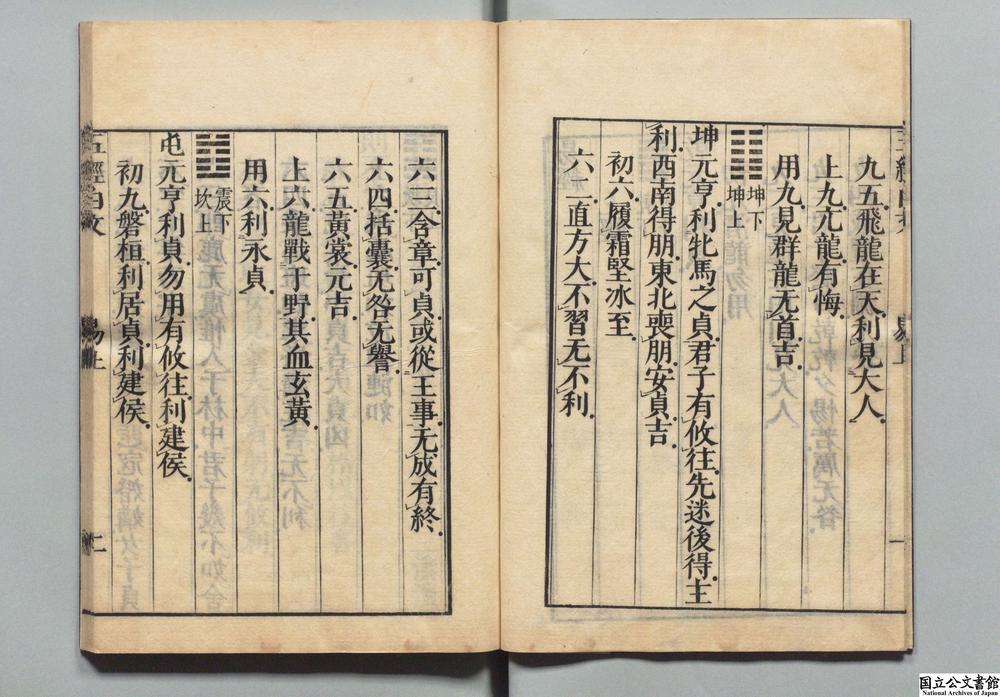 九五飛龍在天利見大人
上九亢龍有悔
用九見群龍无首吉
坤下
坤上
坤元亨利牝馬之貞君子有攸往先迷後得主
利西南得朋東北喪朋安貞吉
初六履霜堅冰至
六二直方大不習无不利
六三含章可貞或從王事无成有終
六四括囊无咎无譽
六五黃裳元吉
上六龍戰于野其血玄黃
用六利永貞
震下
坎上
屯元亨利貞勿用有攸往利建侯
初九磐桓利居貞利建侯
五經白文 易上 二
国立公文書館
National Archives of Japan